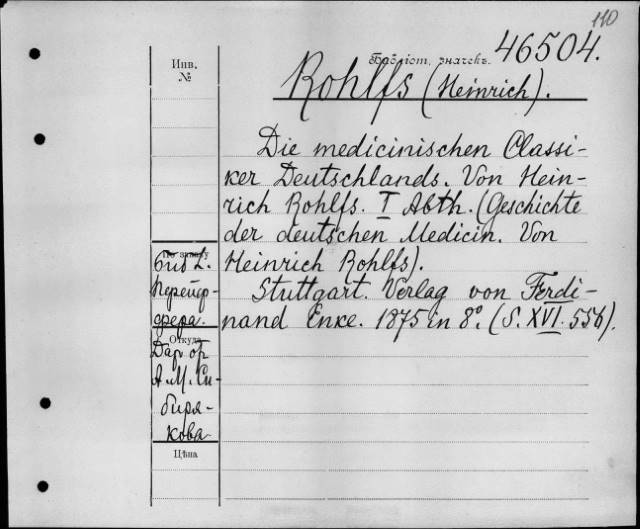 110
46504.
Библіот. значекъ.
Инв.
№
Rohlfs (Heinrich).
Die medicinischen Classi-
ker Deutschlands. Von Hein-
rich Rohlfs. I Abth. (Geschichte
der deutschen Medicin. Von
Heinrich Rohlfs).
Stuttgart. Verlag von Ferdi-
nand Enke. 1875 in 8º. (S. XVI. 556).
По заказу
Библ.
Перейф-
фера.
Откуда
Дар от
А. М. Си-
биря-
кова
Цѣна